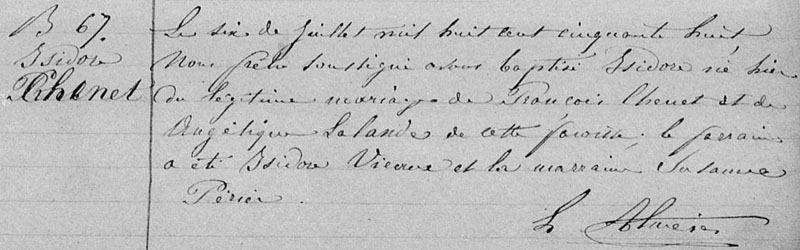 B 67.
Isidore
Chenet
Le six de Juillet mil huit cent cinquante huit
Nous prêtre soussigné avons baptisé Isidore né hier
du légitime mariage de François Chenet et de
Angélique Lalande de cette paroisse. le parrain
a été Isidore et la marraine Susanne
Périer.